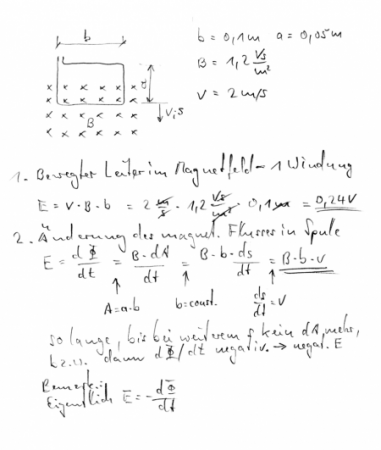 b
b = 0,1m a = 0,05m
B = 1,2 Vs/m²
v = 2 m/s
x x x x x x
x x x x x x
x x x B x x
x x x x x x
a
v, s
1. Bewegter Leiter im Magnetfeld - 1 Windung
E = v · B · b = 2 m/s · 1,2 Vs/m² · 0,1m = 0,24V
2. Änderung des magnet. Flusses in Spule
E = dΦ/dt = B·dA/dt = B·b·ds/dt = B·b·v
A=a·b b=const. ds/dt = v
so lange, bis bei weiterem kein dA mehr,
bzw. dann dΦ/dt negativ. → negat. E
Bemerk.:
Eigentlich E = - dΦ/dt